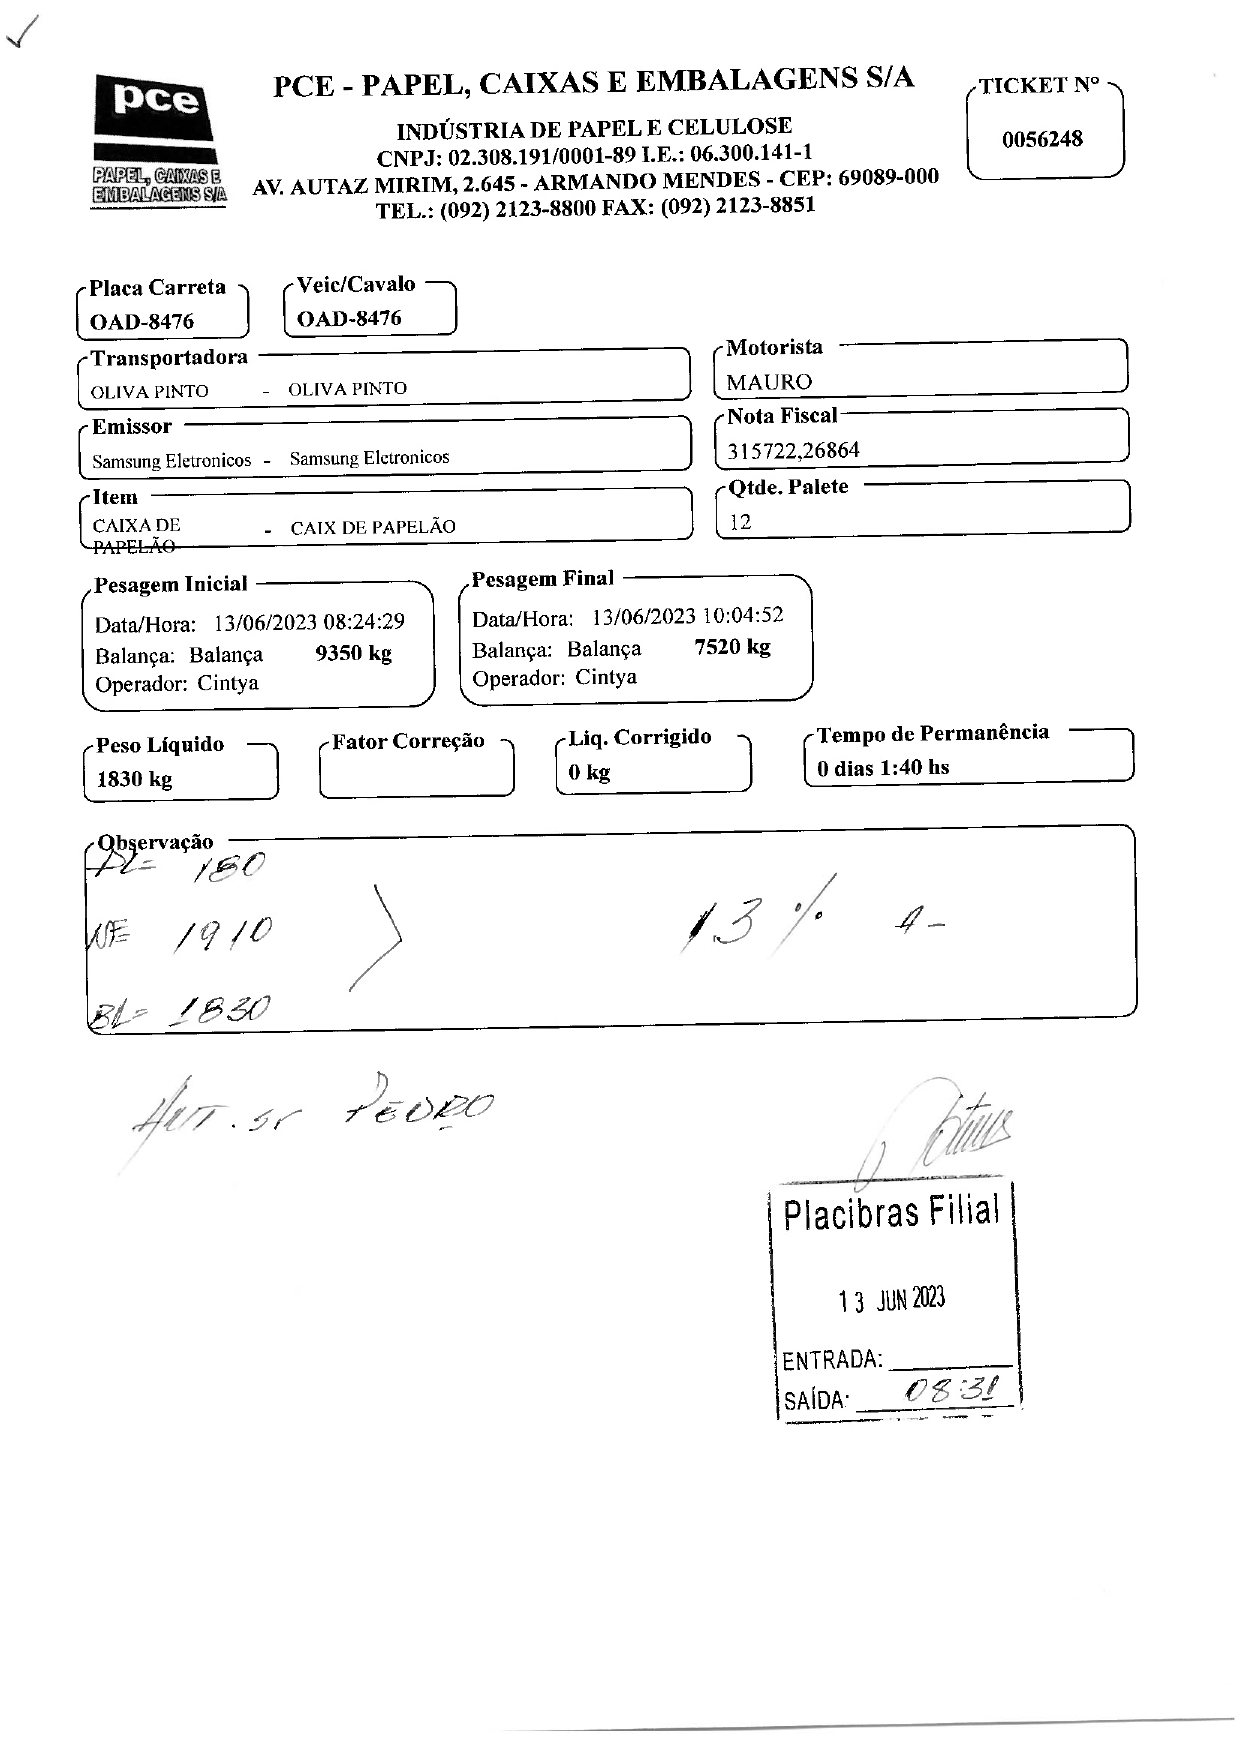 pce
PAPEL, CAIXAS E
EMBALAGENS S/A
PCE - PAPEL, CAIXAS E EMBALAGENS S/A
INDÚSTRIA DE PAPEL E CELULOSE
CNPJ: 02.308.191/0001-89 I.E.: 06.300.141-1
AV. AUTAZ MIRIM, 2.645 - ARMANDO MENDES - CEP: 69089-000
TEL.: (092) 2123-8800 FAX: (092) 2123-8851
TICKET Nº
0056248
Placa Carreta
OAD-8476
Veic/Cavalo
OAD-8476
Transportadora
OLIVA PINTO - OLIVA PINTO
Motorista
MAURO
Emissor
Samsung Eletronicos - Samsung Eletronicos
Nota Fiscal
315722,26864
Item
CAIXA DE
PAPELÃO
- CAIX DE PAPELÃO
Qtde. Palete
12
Pesagem Inicial
Data/Hora: 13/06/2023 08:24:29
Balança: Balança 9350 kg
Operador: Cintya
Pesagem Final
Data/Hora: 13/06/2023 10:04:52
Balança: Balança 7520 kg
Operador: Cintya
Peso Líquido
1830 kg
Fator Correção
Liq. Corrigido
0 kg
Tempo de Permanência
0 dias 1:40 hs
Observação
PL= 180
NF= 1910
BL= 1830
13 %
AUT. Sr PEDRO
Placibras Filial
13 JUN 2023
ENTRADA:
SAÍDA: 08:31